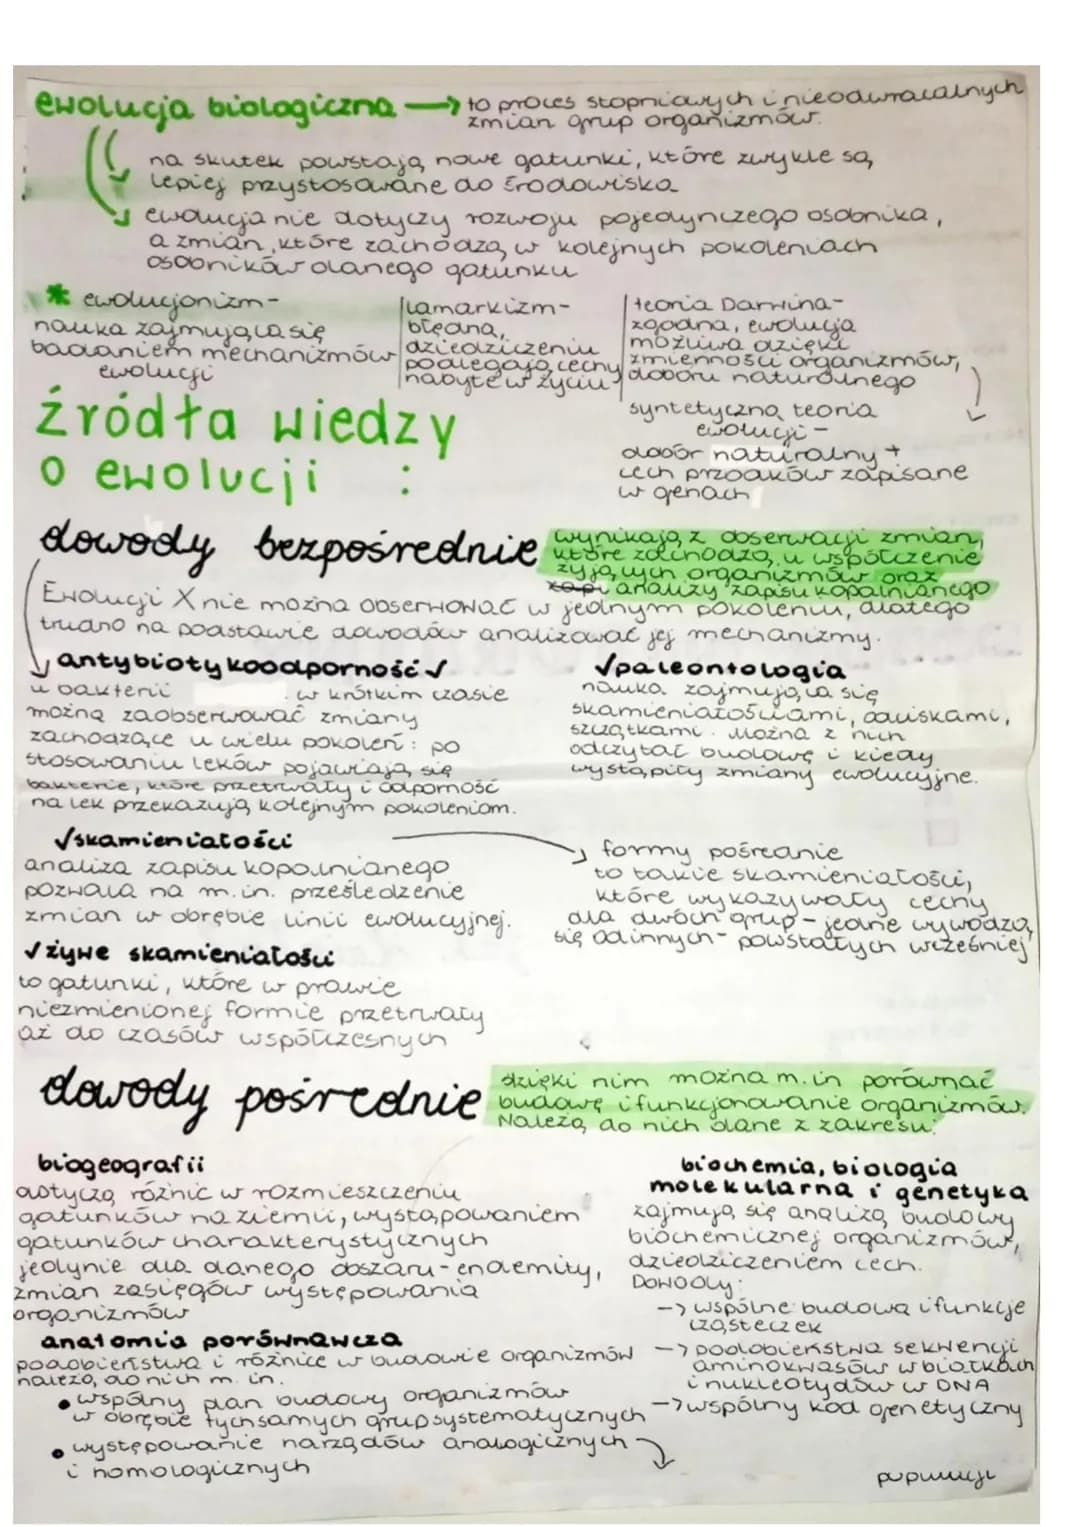 ewolucja biologiczna → to proces stopniowych i nieodwracalnych
zmian grup organizmów.
na skutek powstają nowe gatunki, które zwykle są
lepiej przystosowane do środowiska
ewolucja nie dotyczy rozwoju pojedynczego osobnika,
a zmian, które zachodzą w kolejnych pokoleniach
osobników danego gatunku
* ewolucjonizm-
nauka zajmująca się
badaniem mechanizmów
ewolucji
lamarkizm-
błędna,
dziedziczeniu
podlegają cechy
nabyte w życiu
teoria Darwina-
zgodna, ewolucja
możliwa dzięki
zmienności organizmów,
doboru naturalnego
syntetyczna teoria
ewolucji -
dobór naturalny +
cech przodków zapisane
w genach
źródła wiedzy
o ewolucji :
dowody bezpośrednie
wynikają z obserwacji zmian,
które zachodzą u współcześnie
żyjących organizmów oraz
analizy zapisu kopalnianego
Ewolucji X nie można obserwować w jednym pokoleniu, dlatego
trudno na podstawie dowodów analizować jej mechanizmy.
antybiotykoodporność √
u bakterii w krótkim czasie
można zaobserwować zmiany
zachodzące u wielu pokoleń: po
stosowaniu leków pojawiają się
bakterie, które przetrwały i odporność
na lek przekazują kolejnym pokoleniom.
√paleontologia
nauka zajmująca się
skamieniałościami, odciskami,
szczątkami. Można z nich
odczytać budowę i kiedy
wystąpiły zmiany ewolucyjne.
√skamieniałości
analiza zapisu kopalnianego
pozwala na m.in. prześledzenie
zmian w obrębie linii ewolucyjnej.
formy pośrednie
to takie skamieniałości,
które wykazywały cechy
dla dwóch grup - jedne wywodzą
się od innych - powstałych wcześniej
√żywe skamieniałości
to gatunki, które w prawie
niezmienionej formie przetrwały
aż do czasów współczesnych
dowody pośrednie
dzięki nim można m.in porównać
budowę i funkcjonowanie organizmów.
Należą do nich dane z zakresu:
biogeografii
dotyczą różnic w rozmieszczeniu
gatunków na ziemii, wystąpowaniem
gatunków charakterystycznych
jedynie dla danego obszaru - endemity,
zmian zasięgów występowania
organizmów
anatomia porównawcza
podobieństwa i różnice w budowie organizmów
należą do nich m. in.
• wspólny plan budowy organizmów
w obrębie tych samych grup systematycznych
• występowanie narządów analogicznych
i homologicznych
biochemia, biologia
molekularna i genetyka
zajmują się analizą budowy
biochemicznej organizmów,
dziedziczeniem cech.
Dowody:
-> wspólne budową i funkcje
cząsteczek
-> podobieństwa sekwencji
aminokwasów w białkach
i nukleotydów w DNA
-> wspólny kod genetyczny